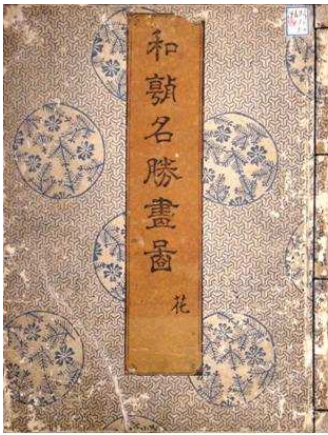 和名勝畫圖
花